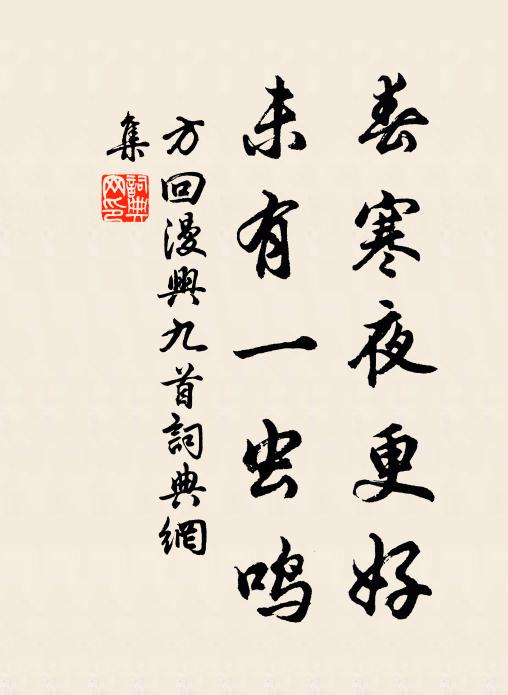 春寒夜更好
未有一虫鸣
方回漫興九首詞典網
集
詞典網印